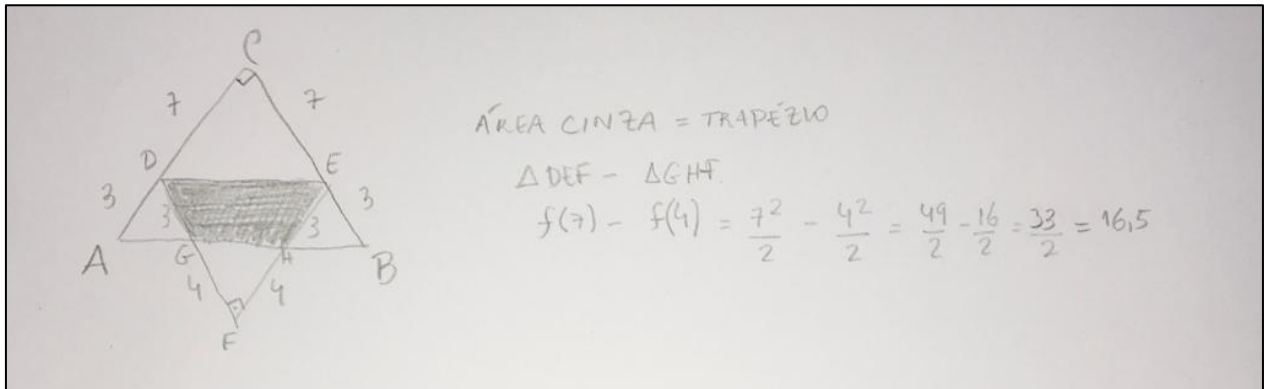 C
7 7
D E
3 3 3 3
A G H B
4 4
F
ÁREA CINZA = TRAPÉZIO
Δ DEF - ΔGHF.
f(7) - f(4) = 7²/2 - 4²/2 = 49/2 - 16/2 = 33/2 = 16,5